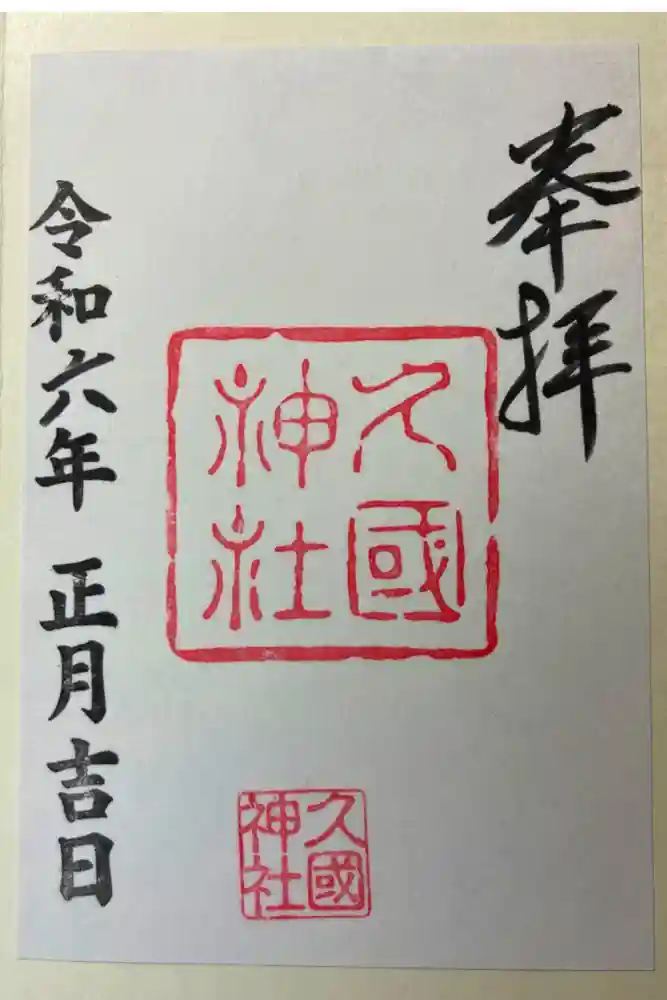 奉拝
久國
神社
久國
神社
令和六年 正月吉日